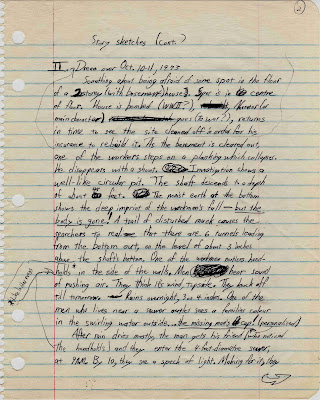 ②
Story sketches (cont.)
II. Dream over Oct. 10-11, 1993
Something about being afraid of some spot in the floor
of a 2 storey (with basement) house. Spot is in centre
of floor. House is bombed (WWII?), Hero (or
main character) goes (to war?), returns
in time to see the site cleared off in order for his
to rebuild it. As the basement is cleared out,
one of the workers steps on a planking which collapses.
He disappears with a shout. Investigation shows a
well-like circular pit. The shaft descends to a depth
of about feet. The moist earth at the bottom
shows the deep imprint of the workman's fall — but the
body is gone! A trail of disturbed muck causes the
searchers to realize that there are 6 tunnels leading
from the bottom out, on the level of about 3 inches
above the shaft's bottom. One of the notices hand-
holds in the side of the walls. Men hear sound
of rushing air. They think it's wind, upside. They knock off
till tomorrow. Rains overnight, 2 or 4 inches. One of the
men who lives near a sewer outlet sees a familiar colour
in the swirling water outside. the missing man's cap! (personalized)
After rain dries mostly, the man gets his friend (who noticed
the handholds) and they enter the 4-foot-diameter sewer,
at 9 A.M. By 10, they see a speck of light. Making for it, they